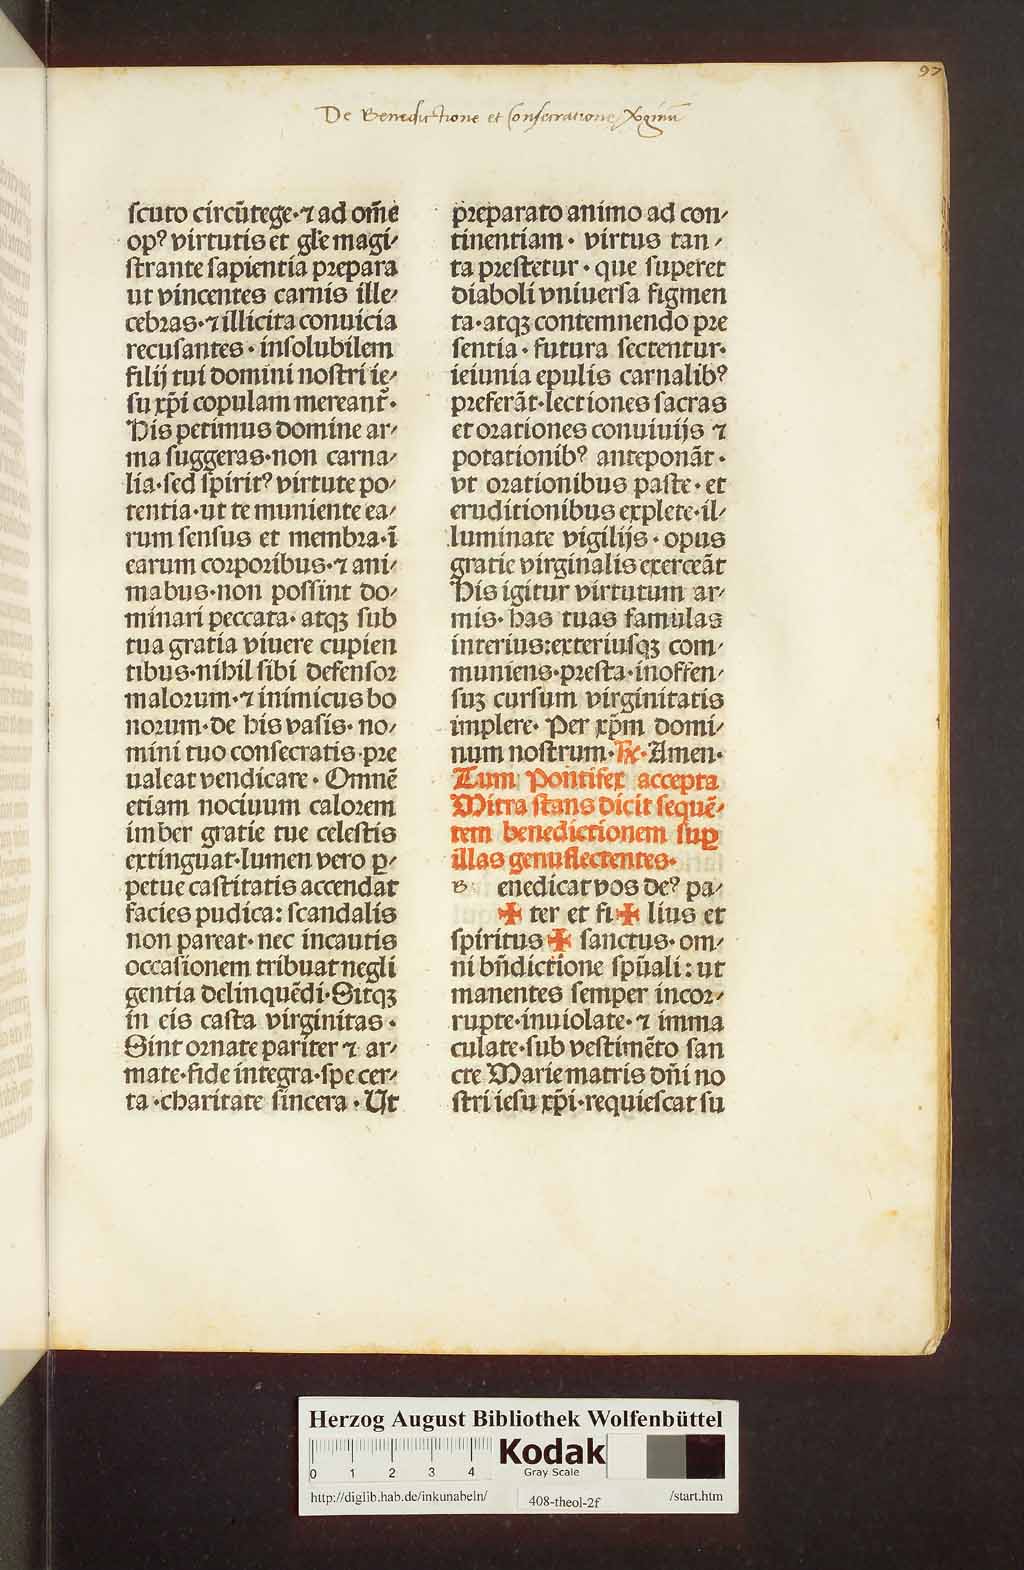 97
De Benedictione et Consecratione Virginũ
ſcuto circũtege·⁊ ad om̃e
opꝰ virtutis et gl̃e magi⸗
ſtrante ſapientia prepara
ut vincentes carnis ille⸗
cebras·⁊ illicita conuicia
recuſantes· inſolubilem
filij tui domini noſtri ie⸗
ſu xp̃i copulam mereant̃·
His petimus domine ar⸗
ma ſuggeras·non carna⸗
lia·ſed ſpiritꝰ virtute po⸗
tentia·ut te muniente ea⸗
rum ſenſus et membra·ĩ
earum corporibus·⁊ ani⸗
mabus·non poſſint do⸗
minari peccata· atqꝫ ſub
tua gratia viuere cupien
tibus·nihil ſibi defenſor
malorum·⁊ inimicus bo
norum·de his vaſis· no⸗
mini tuo conſecratis·pre
ualeat vendicare· Omnẽ
etiam nociuum calorem
imber gratie tue celeſtis
extinguat·lumen vero ꝑ⸗
petue caſtitatis accendat
facies pudica: ſcandalis
non pareat·nec incautis
occaſionem tribuat negli
gentia delinquẽdi·Sitqꝫ
in eis caſta virginitas·
Sint ornate pariter ⁊ ar⸗
mate·fide integra·ſpe cer⸗
ta·charitate ſincera· Ut
preparato animo ad con⸗
tinentiam· virtus tan⸗
ta preſtetur· que ſuperet
diaboli vniuerſa figmen
ta·atqꝫ contemnendo pre
ſentia· futura ſectentur·
ieiunia epulis carnalibꝰ
preferãt·lectiones ſacras
et orationes conuiuijs ⁊
potationibꝰ anteponãt·
vt orationibus paſte· et
eruditionibus explete·il⸗
luminate vigilijs· opus
gratie virginalis exerceãt
His igitur virtutum ar⸗
mis· has tuas famulas
interius:exteriuſqꝫ com⸗
muniens·preſta·inoffen⸗
ſuꝫ curſum virginitatis
implere· Per xp̃m domi⸗
num noſtrum·℟·Amen·
Tum Pontifex accepta
Mitra ſtans dicit ſequẽ⸗
tem benedictionem ſuꝑ
illas genuflectentes·
B enedicat vos deꝰ pa⸗
✠ ter et fi✠ lius et
ſpiritus ✠ ſanctus· om⸗
ni bñdictione ſpũali: ut
manentes ſemper incor⸗
rupte·inuiolate· ⁊ imma
culate·ſub veſtimẽto ſan
cte Marie matris dñi no
ſtri ieſu xp̃i·requieſcat ſu
Herzog August Bibliothek Wolfenbüttel
0 1 2 3 4
Kodak
Gray Scale
http://diglib.hab.de/inkunabeln/ 408-theol-2f /start.htm